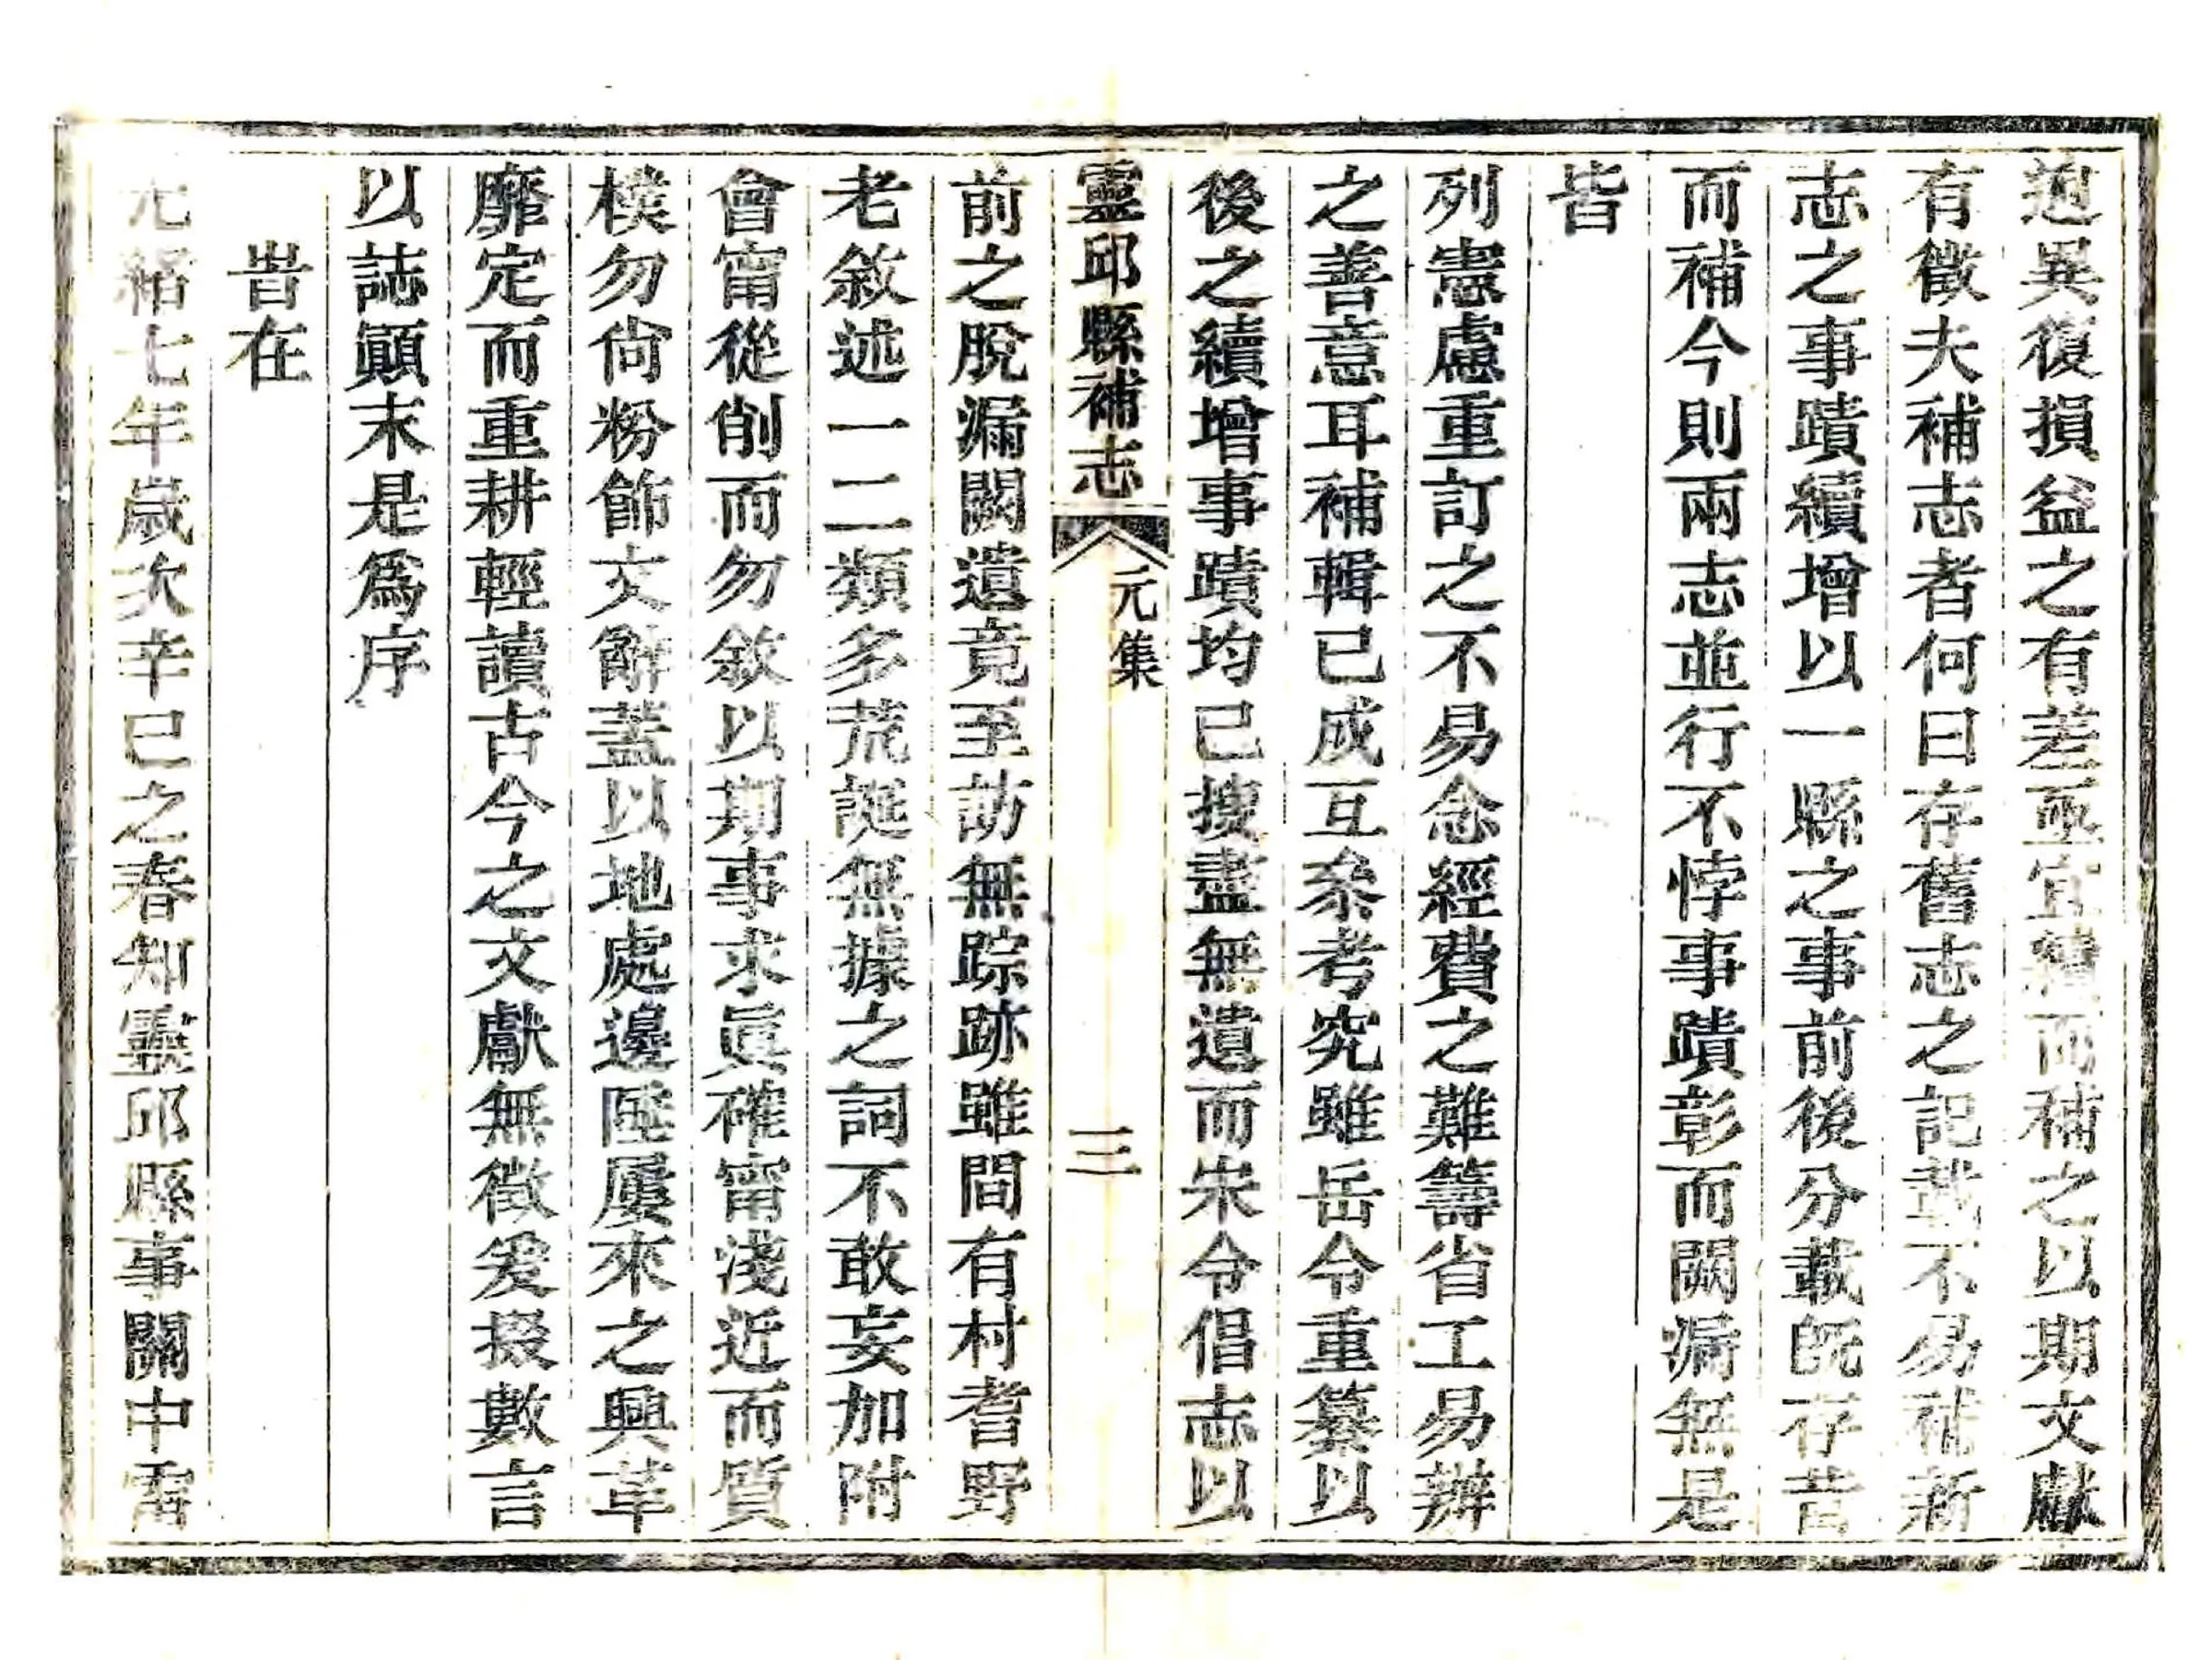 迥異復損益之有差亟宜續而補之以期文獻
有徵夫補志者何曰存舊志之記載不易補新
志之事蹟續增以一縣之事前後分載旣存昔
而補今則兩志並行不悖事蹟彰而闕漏無是
皆
列憲慮重訂之不易念經費之難籌省工易辦
之善意耳補輯已成互叅考究雖岳令重纂以
後之續增事蹟均已搜盡無遺而宋令倡志以
靈邱縣補志
元集
三
前之脫漏闕遺竟至訪無踪跡雖間有村耆野
老敘述一二類多荒誕無據之詞不敢妄加附
會甯從削而勿敘以期事求眞確甯淺近而質
樸勿尙粉飾文辭蓋以地處邊陲屢來之興革
靡定而重耕輕讀古今之文獻無徵爰掇數言
以誌顚末是爲序
旹在
光緒七年歲次辛巳之春知靈邱縣事關中雷